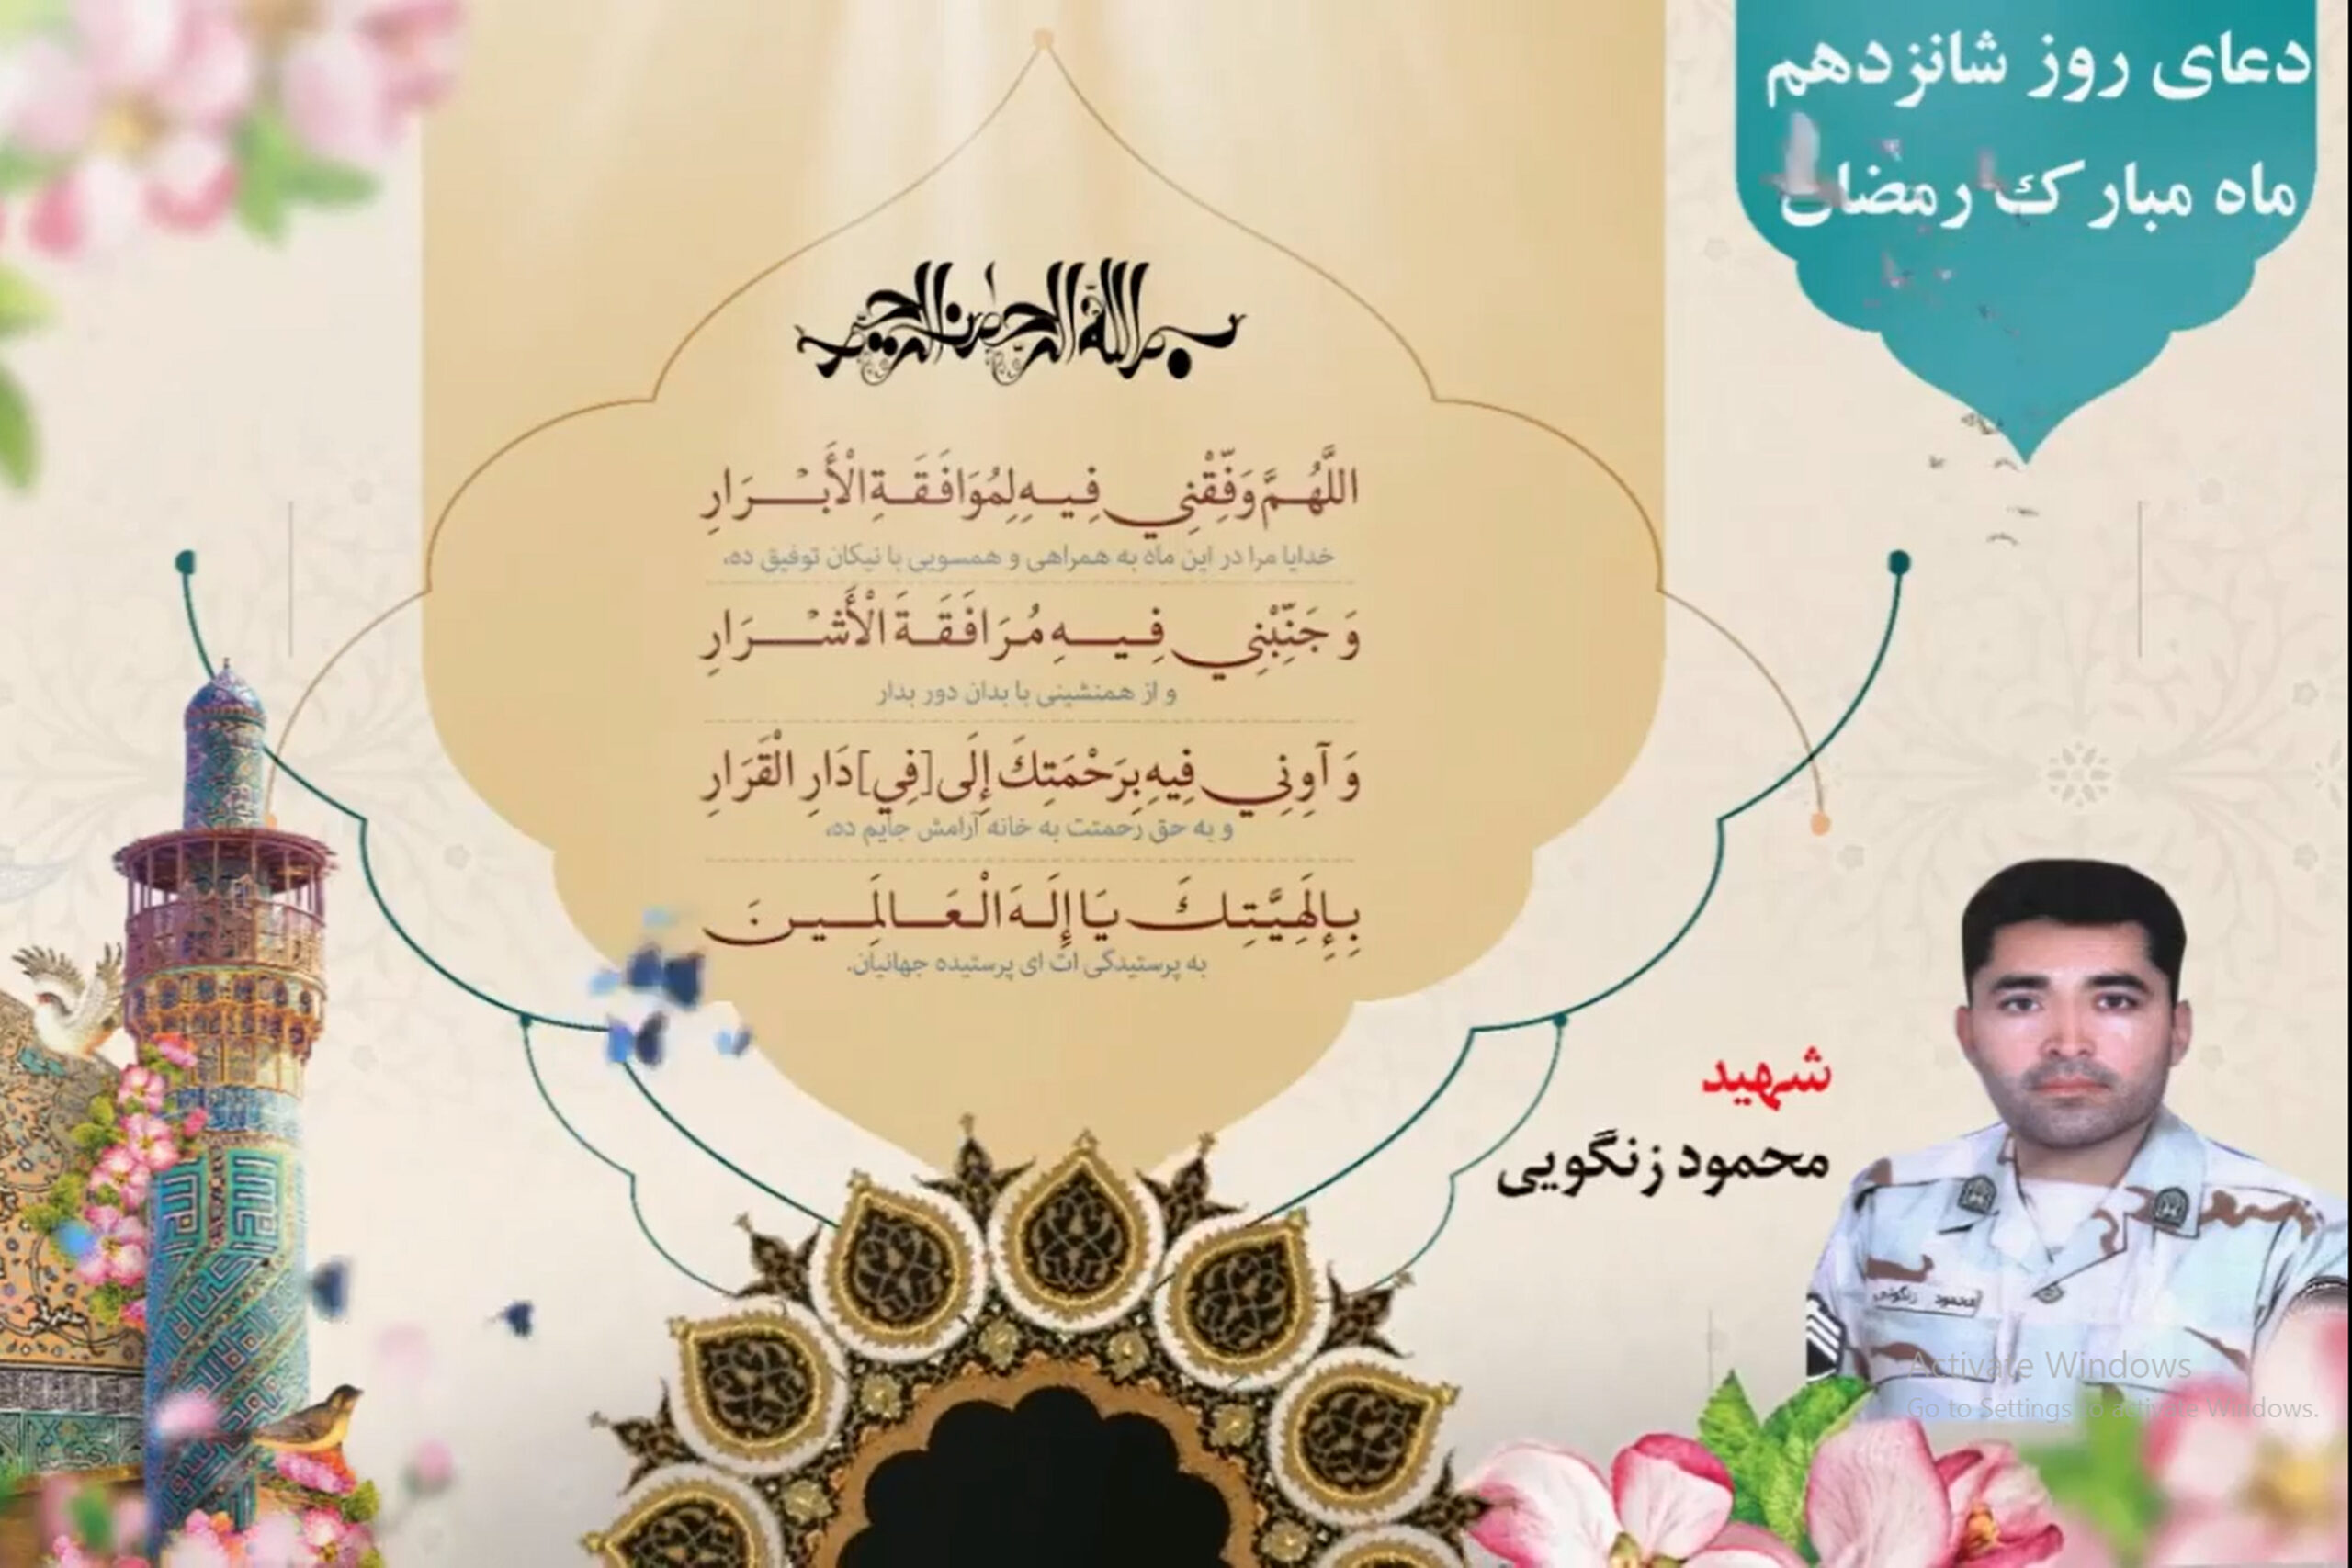 دعای روز شانزدهم
ماه مبارک رمضان
بسم الله الرحمن الرحیم
اللَّهُمَّ وَفِّقْنِي فِيهِ لِمُوَافَقَةِ الْأَبْرَارِ
خدایا مرا در این ماه به همراهی و همسویی با نیکان توفیق ده،
وَ جَنِّبْنِي فِيهِ مُرَافَقَةَ الْأَشْرَارِ
و از همنشینی با بدان دور بدار
وَ آوِنِي فِيهِ بِرَحْمَتِكَ إِلَى [فِي] دَارِ الْقَرَارِ
و به حق رحمتت به خانه آرامش جایم ده،
بِإِلَهِيَّتِكَ يَا إِلَهَ الْعَالَمِينَ
به پرستیدگی ات ای پرستیده جهانیان.
شهید
محمود زنگویی
محمود زنگوئی
Activate Windows
Go to Settings to activate Windows.